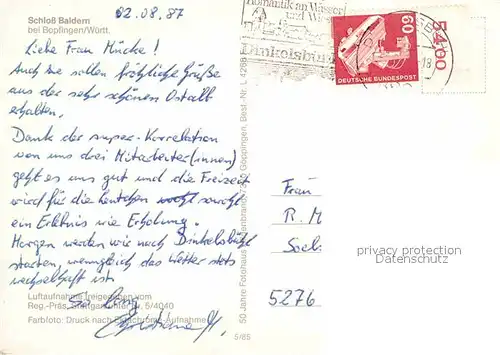 Schloß Baldern
bei Bopfingen/Württ.
02.08.87
Liebe Frau Mücke!
Auch Sie sollen fröhliche Grüße
aus der sehr schönen Ostalb
erhalten.
Dank der super-Korrelation
von uns drei Mitarbeiter(innen)
geht es uns gut und die Freizeit
wird für die sowohl
ein Erlebnis wie Erholung.
Morgen werden wir nach Dinkelsbühl
starten, wenngleich das Wetter stets
wechselhaft ist.
Luftaufnahme freigegeben vom
Reg.-Präs. Stuttgart unter Nr. 5/4040
Farbfoto: Druck nach Ektachrome-Aufnahme
5/85
Göppingen, Best.-Nr. L 4286
50 Jahre Fotohaus
Romantik an Wasser
und
Dinkelsbühl
60
DEUTSCHE BUNDESPOST
5400
Frau
R. M
Soel
5276
privacy protection
Datenschutz